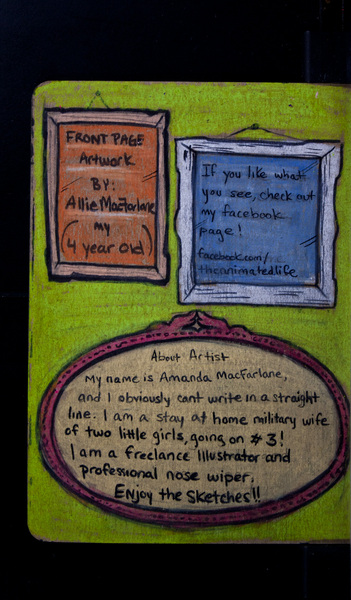 FRONT PAGE
Artwork
BY:
Allie MacFarlane
(my
4 year old)
If you like what
you see, check out
my facebook
page!
facebook.com/
theanimatedlife
About Artist
My name is Amanda MacFarlane,
and I obviously cant write in a straight
line. I am a stay at home military wife
of two little girls, going on #3!
I am a freelance Illustrator and
professional nose wiper.
Enjoy the Sketches!!